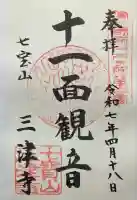 奉拝
令和七年四月十八日
十一面観音
七宝山
三津寺